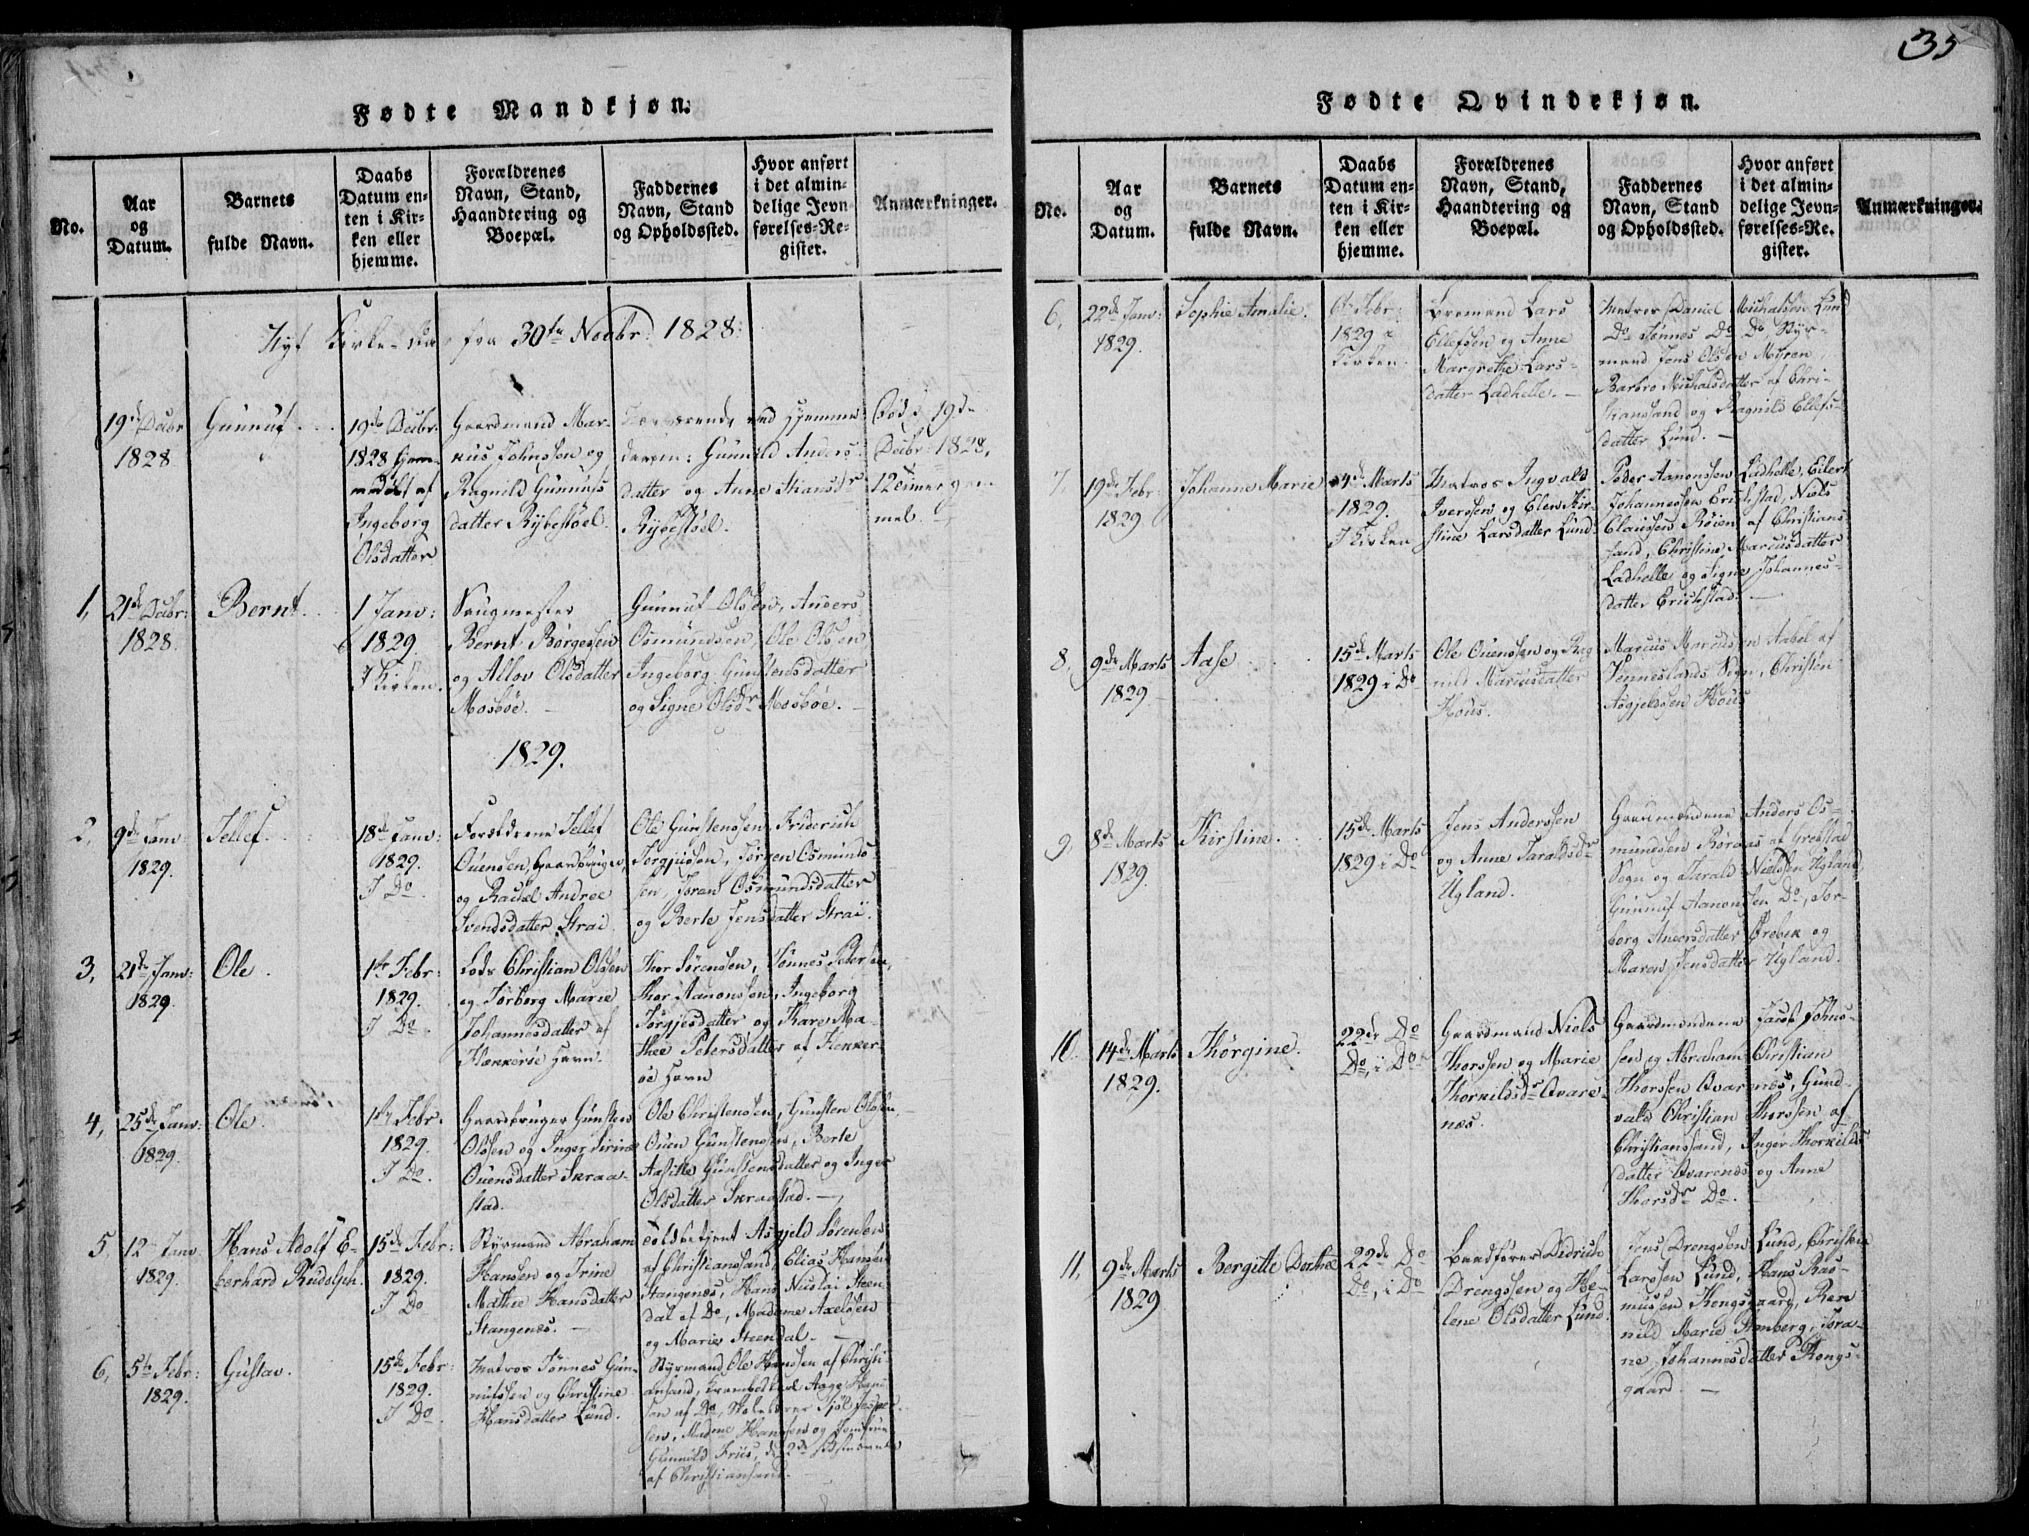 Fødte Mandkjøn.
No.
Aar
og
Datum.
Barnets
fulde Navn.
Daabs
Datum en-
ten i Kir-
ken eller
hjemme.
Forældrenes
Navn, Stand,
Haandtering og
Boepæl.
Faddernes
Navn, Stand
og Opholdssted.
Hvor anført
i det almin-
delige Jevn-
førelses-Re-
gister.
Anmærkninger.
Nyt Kirke-Aar fra 30te Novbr: 1828:
19de Decbr
1828
Gunnuf
19de Decbr:
1828 hjem-
medøbt af
Ingeborg
Olsdatter
Gaardmand Mar-
kus Johnssen og
Ragnild Gunnufs
datter Rybestøel.
Nærværende ved Hjemme
daaben: Gunnild Anders-
datter og Anne
Rybestøel.
Død d. 19de
Decbr: 1828,
12 Timer gam-
mel.
1,
21de Decbr:
1828
Bernt
1 Janv:
1829
I Kirken.
Saugmester
Bernt Børgessen
og Allov Olsdatter
Mosbøe.
Gunnuf Olssen, Anders
Osmundsen, Ole Olssen,
Ingeborg Gunstensdatter
og Signe Olsdr Mosbøe.
1829.
2,
9de Janv:
1829.
Tellef
18de Janv:
1829.
I Do.
Forældrene Tellef
Ouensen, Gaardbruger,
og Rachel Andree
Svendsdatter Strai
Ole Gunstenssen, Friderich
Torgjussen, Jørgen Osmunds-
sen, Joran Osmundsdatter
og Berte Jensdatter Strai.
3,
21de Janv:
1829.
Ole.
1te Febr:
1829.
I Do.
Lods Christian Olssen
og Torborg Marie
Johannesdatter af
Flekkerøe Havn.
Thor Sørenssen, Tønnes Peterssen,
Thor Aanonssen, Ingeborg
Torgjesdatter og Karen Ma-
thee Petersdatter af Flekker-
øe Havn
4,
25de Janv:
1829.
Ole.
1te Febr:
1829.
I Do.
Gaardbruger Gunsten
Olssen og Inger Sirine
Ouensdatter Skraa-
stad.
Ole Christenssen, Gunsten Olssen,
Ouen Gunstenssen, Berte
Aasille Gunstensdatter og Inger
Olsdatter Skraastad.
5,
12 Janv
1829.
Hans Adolf E-
berhard Rudolph.
15de Febr:
1829.
I Do
Styrmand Abraham
Hansen og Trine
Mathie Hansdatter
Stangenes.
Toldbetjent Asgjeld Sørensen
af Christiansand, Elias Hansen
Stangenes, Hans Nicolai Steen
dal af Do, Madame Axelssen
og Marie Steendal.
6,
5te Febr:
1829.
Gustav.
15de Febr:
1829.
I Do.
Matros Tønnes Gun-
nufssen og Christine
Hansdatter Lund.
Styrmand Ole Hanssen af Christi-
ansand, Aage Hans-
sen af Do, Skolelærer
sen, Madme Hanssen og Jomfrue
Gunnild Friis, de 2de
af Christiansand.
35
Fødte Qvindekjøn.
No.
Aar
og
Datum.
Barnets
fulde Navn.
Daabs
Datum en-
ten i Kir-
ken eller
hjemme.
Forældrenes
Navn, Stand,
Haandtering og
Boepæl.
Faddernes
Navn, Stand
og Opholdssted.
Hvor anført
i det almin-
delige Jevn-
førelses-Re-
gister.
Anmærkninger.
6,
22de Janv:
1829.
Sophie Amalie.
Febr:
1829 i
Kirken.
Lars
Ellefsen og Anne
Margrethe Lars-
datter Ladhelle.
Matros Daniel Michalssen Lund
Do Tønnes Do Do Styr-
mand Jens Olssen Myren,
Barbro Michalsdatter af Chri-
stiansand og Ragnild Ellefs-
datter Lund.
7,
19de Febr:
1829
Johanne Marie
4de Marts
1829.
I Kirken
Matros Ingvald
Iverssen og Elen Kir-
stine Larsdatter Lund.
Peder Aanonssen Ladhelle, Eilert
Johannessen Erichstad, Niels
Claussen Røien af Christian-
sand, Christine Marcusdatter
Ladhelle og Signe Johannes-
datter Erichstad.
8,
9de Marts
1829
Aase
15de Marts
1829 i Do
Ole Ouenssen og Rag
nild Marcusdatter
Hous.
Marcus Marcussen Aabel af
Venneslands Sogn, Christen
Asgjeldssen Hous
9,
8de Marts
1829.
Kirstine
15de Marts
1829 i Do
Jens Anderssen
og Anne Taraldsdr
Ugland.
Gaardmændene Anders Os-
mundssen Røraas af Grebstad
Sogn og Tarald Nielssen Ugland
Gunnuf Aanonssen Do, Tor-
borg Andersdatter Ørebek og
Maren Jensdatter Ugland.
10.
14de Marts
1829.
Thørgine.
22de Do
Do, i Do
Gaardmand Niels
Thorssen og Marie
Thorkildsdr Qvare-
næs.
Gaardmændene Jacob Johns-
sen og Abraham Christian
Thorssen Qvarenæs, Gund-
vald Christian Thorssen af
Christianssand, Anger Thorkilds
datter Qvarenæs og Anne
Thorsdr Do.
11,
9de Marts
1829
Bergitte Dorthe
22de Do
Do, i Do
Baadfører Didrich
Drengssen og He-
lene Olsdatter Lund.
Jens Drengssen Lund, Christian
Larssen Lund, Hans Ras-
mussen Kongsgaard, Ran
nild Marie Stenberg, Tora-
ne Johannesdatter Kongs-
gaard.